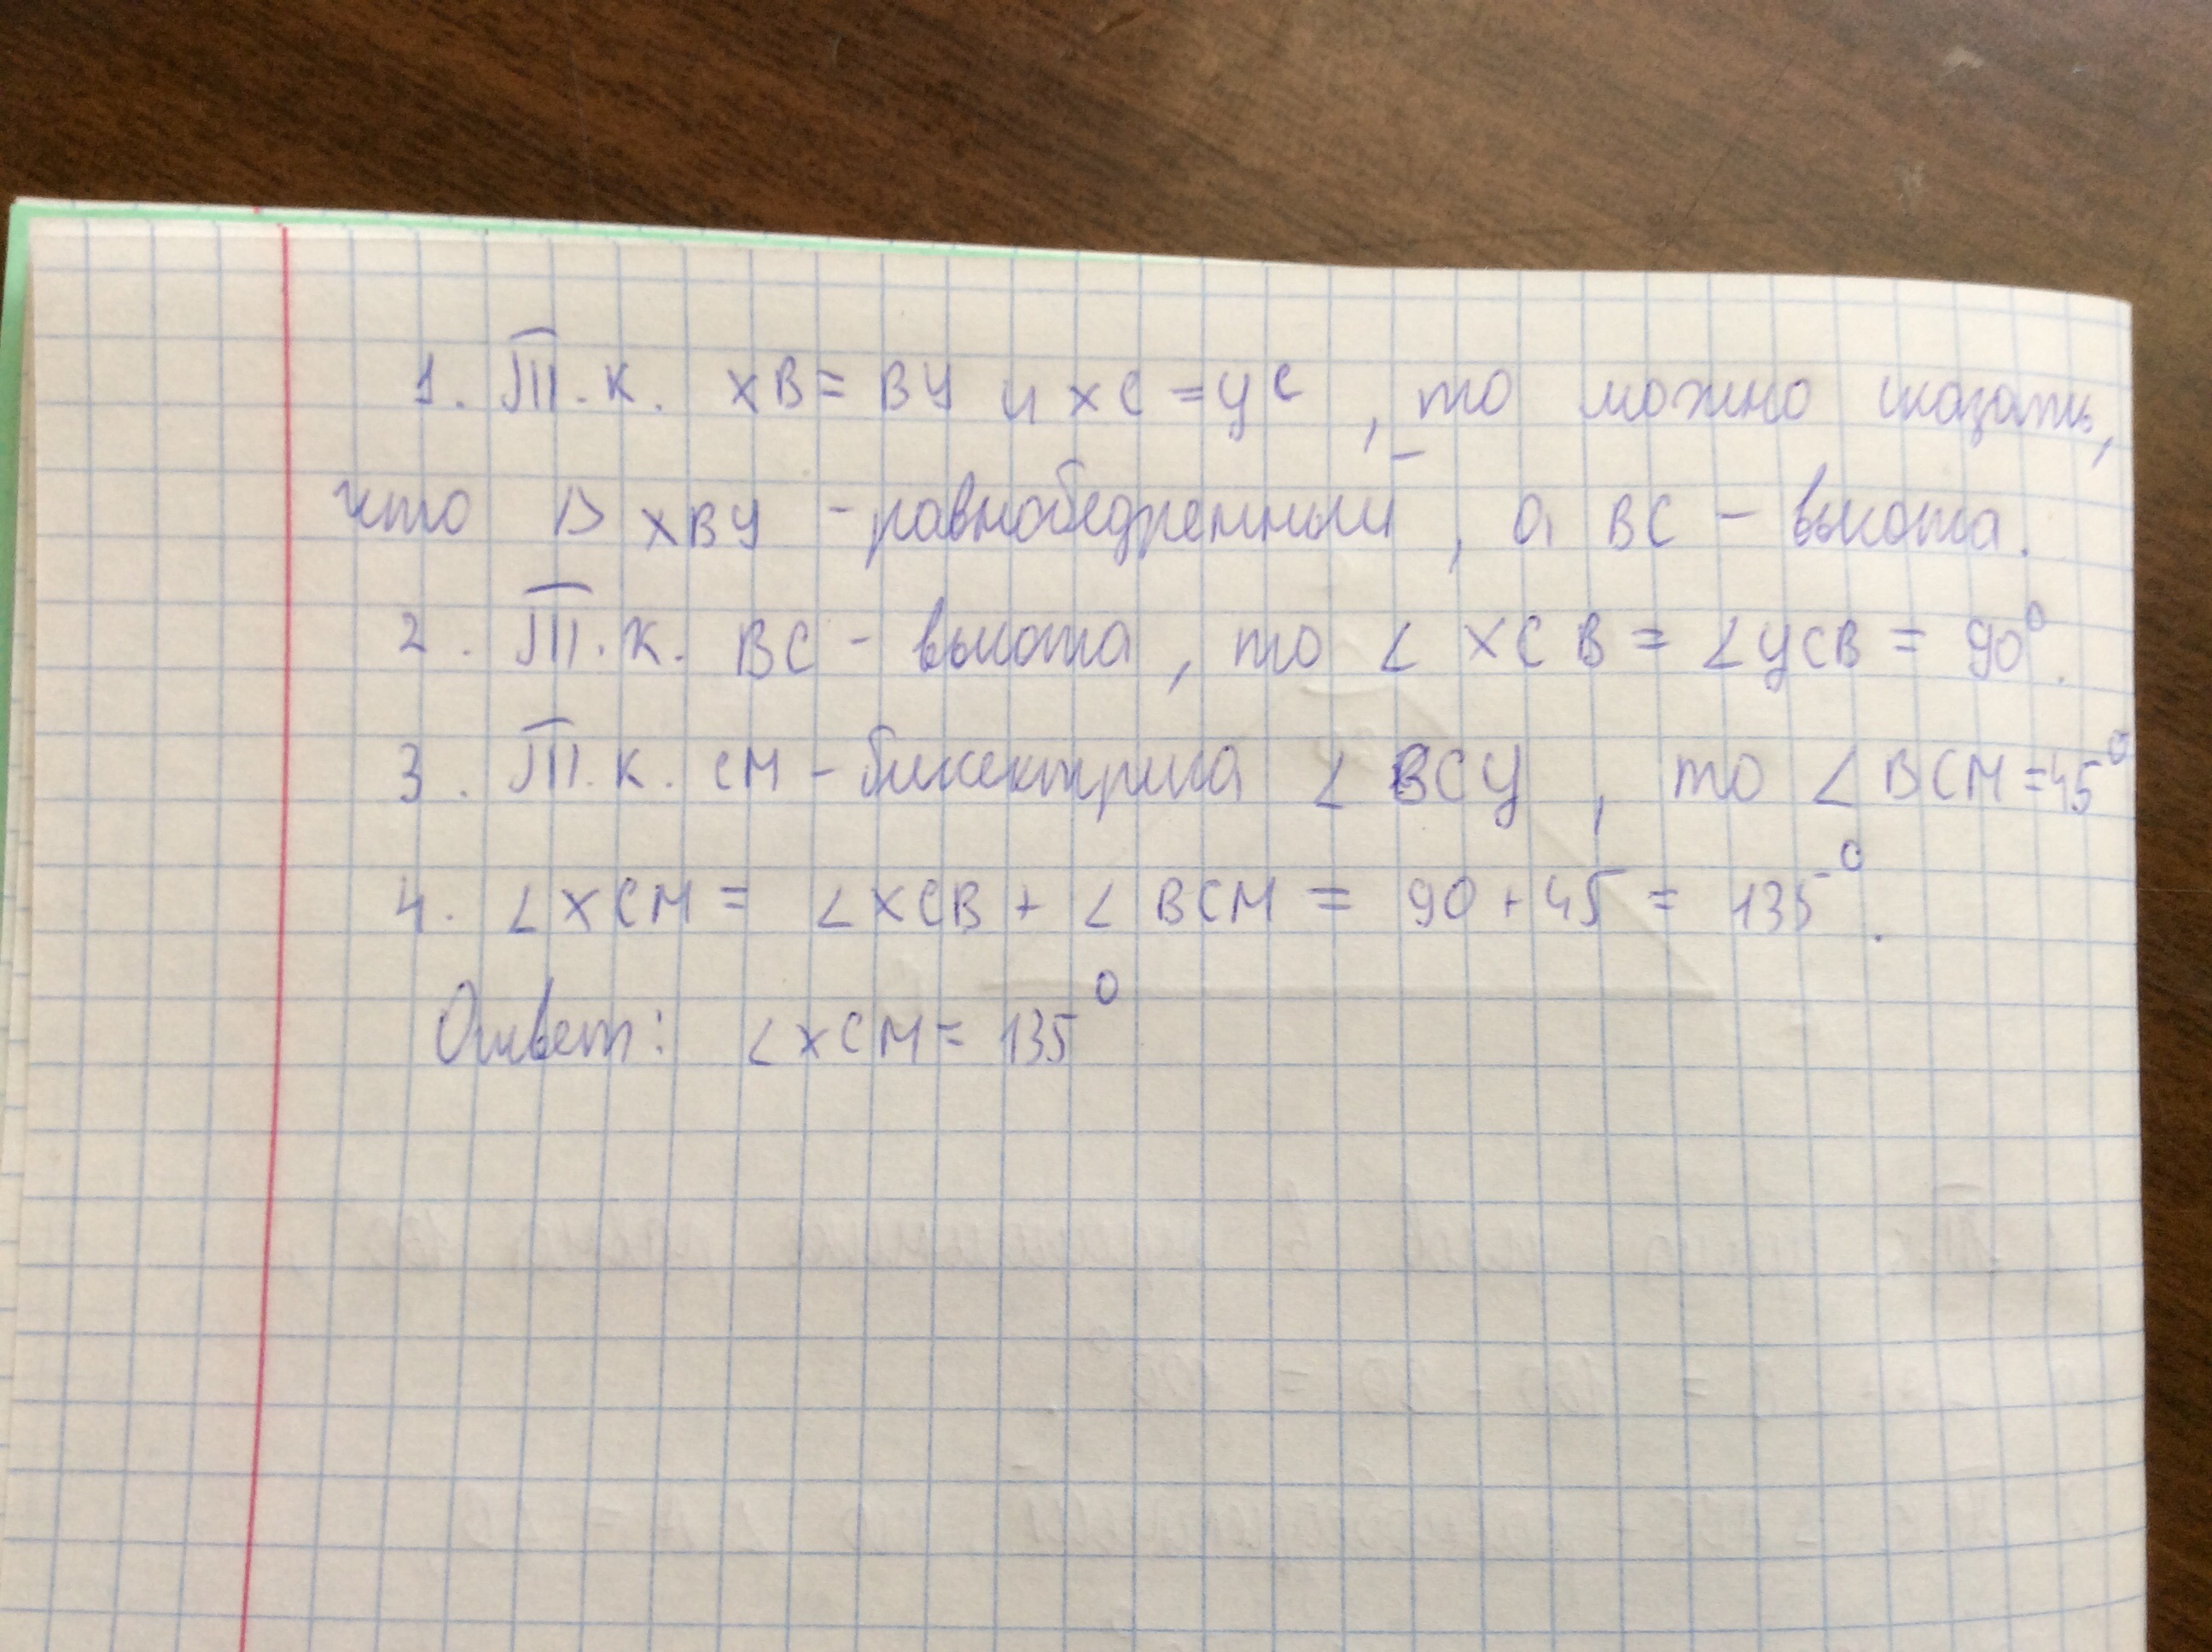 1. Т.к. XB = BY и XC = YC, то можно сказать,
что ▷ XBY - равнобедренный, а BC - высота.
2. Т.к. BC - высота, то ∠ XCB = ∠YCB = 90°.
3. Т.к. CM - биссектриса ∠ BCY, то ∠ BCM = 45°
4. ∠XCM = ∠XCB + ∠ BCM = 90 + 45 = 135°.
Ответ: ∠XCM = 135°